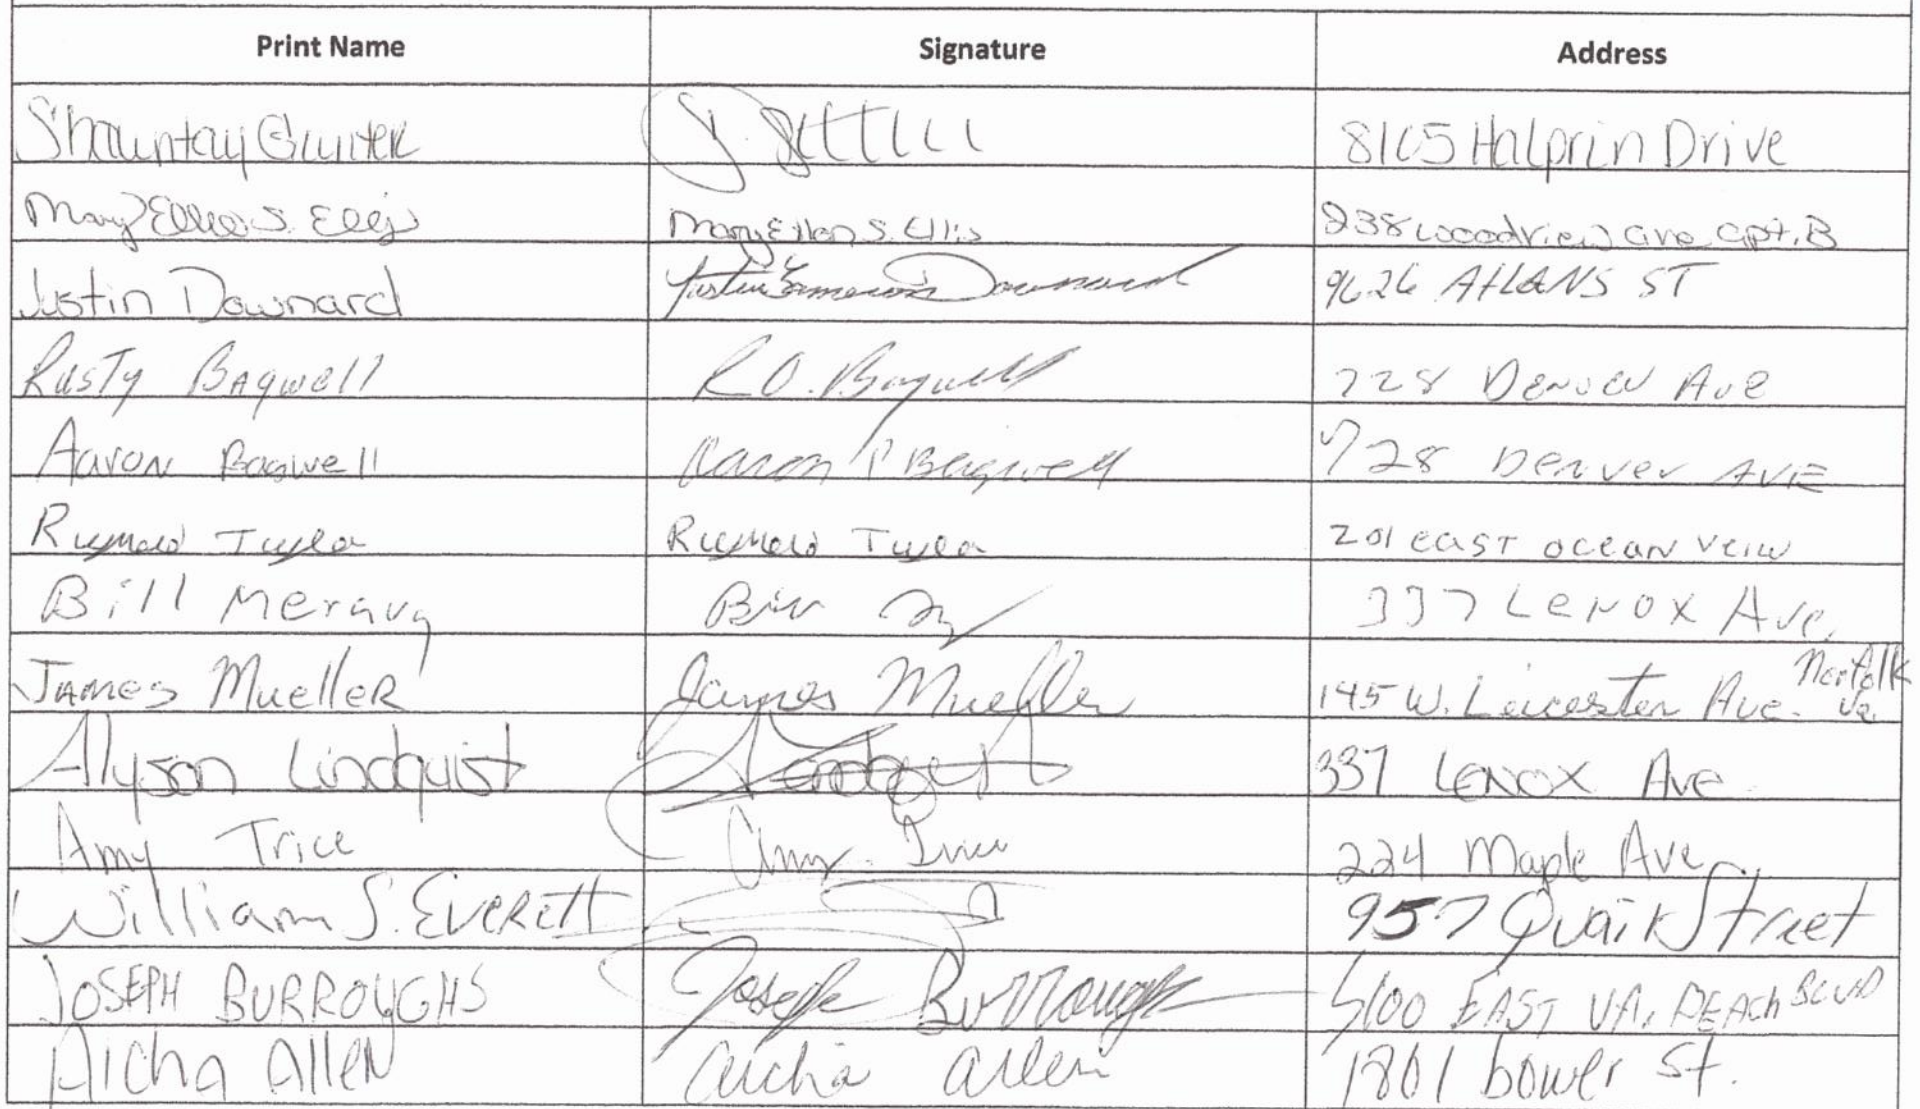 Print Name Signature Address
Shauntay Gunter 8165 Halprin Drive
Mary Ellen S. Ellis Mary Ellen S. Ellis 238 woodview ave apt. B
Justin Downard Justin Cameron Downard 9626 Atlans ST
Rusty Bagwell R.O. Bagwell 728 Denver Ave
Aaron Bagwell Aaron P Bagwell 728 Denver AVE
201 east ocean veiw
Bill Bill 337 Lenox Ave.
James Mueller James Mueller 145 W. Leicester Ave. Norfolk Va.
Alyson Lindquist Lindquist 337 Lenox Ave
Amy Trice Amy Trice 224 Maple Ave.
William S. Everett 957 Quail Street
JOSEPH BURROUGHS Joseph Burroughs 5100 EAST VA. BEACH BLVD
Aicha Allen aicha allen 1801 bower St.